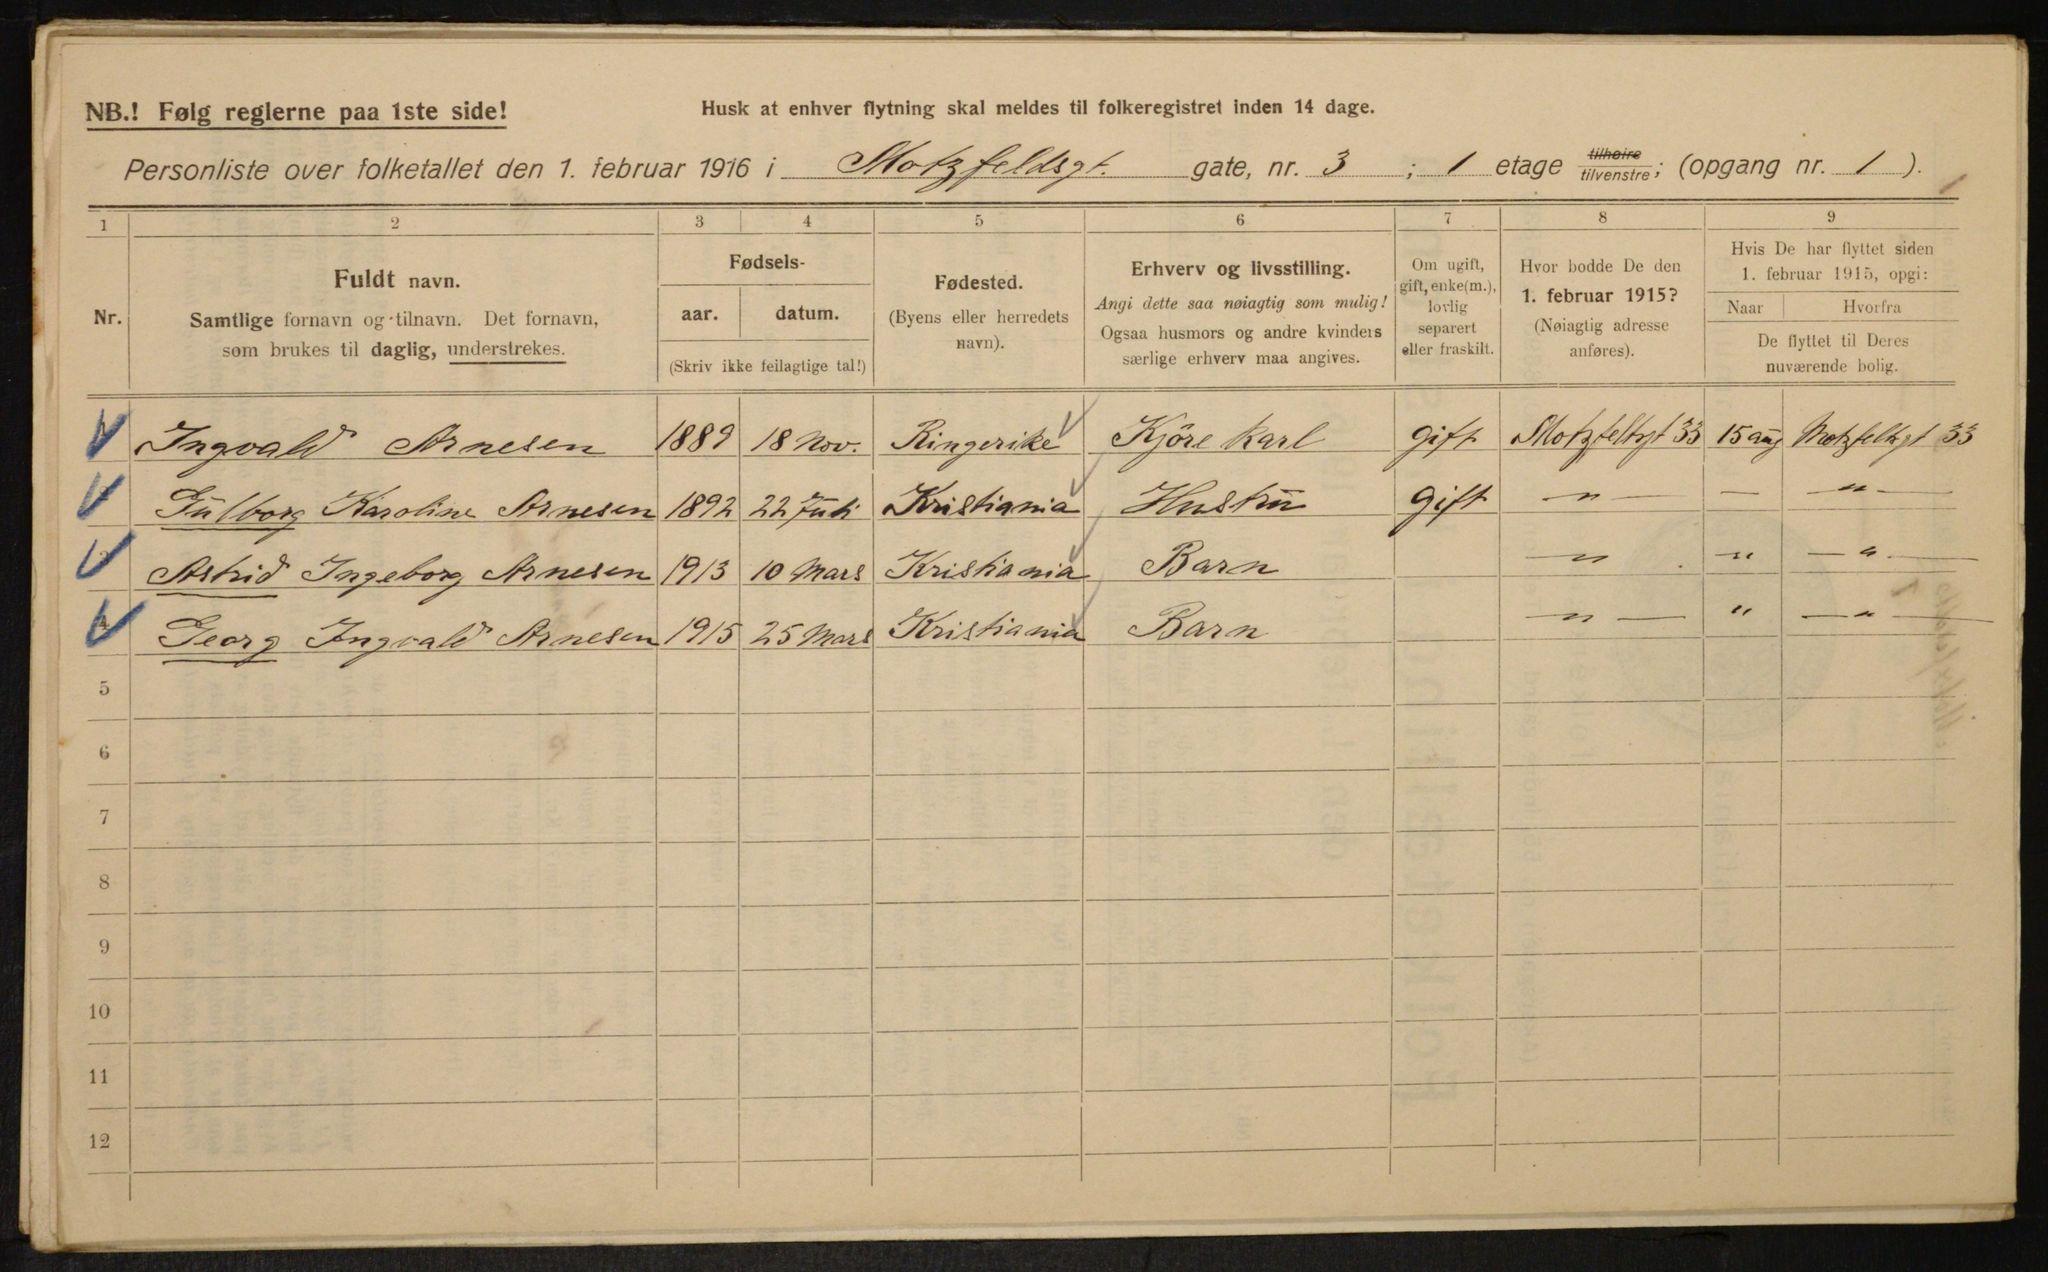 NB.! Følg reglerne paa 1ste side!
Husk at enhver flytning skal meldes til folkeregistret inden 14 dage.
Personliste over folketallet den 1. februar 1916 i Motzfeldsgt. gate, nr. 3 ; 1 etage tilhøire tilvenstre; (opgang nr. 1 ).
1 2 3 4 5 6 7 8 9
Nr.
Fuldt navn.
Samtlige fornavn og tilnavn. Det fornavn,
som brukes til daglig, understrekes.
Fødsels-
aar. datum.
(Skriv ikke feilagtige tal!)
Fødested.
(Byens eller herredets
navn).
Erhverv og livsstilling.
Angi dette saa nøiagtig som mulig!
Ogsaa husmors og andre kvinders
særlige erhverv maa angives.
Om ugift,
gift, enke(m.),
lovlig
separert
eller fraskilt.
Hvor bodde De den
1. februar 1915?
(Nøiagtig adresse
anføres).
Hvis De har flyttet siden
1. februar 1915, opgi:
Naar Hvorfra
De flyttet til Deres
nuværende bolig.
Ingvald Arnesen 1889 18 Nov. Ringerike Kjöre karl gift Motzfeltgt 33 15 aug Motzfeltgt 33
Gulborg Karoline Arnesen 1892 22 Juli Kristiania Hustru Gift — " — — " —
3 Astrid Ingeborg Arnesen 1913 10 Mars Kristiania Barn — " — " — " —
4 Georg Ingvald Arnesen 1915 25 Mars Kristiania Barn — " — " — " —
5
6
7
8
9
10
11
12